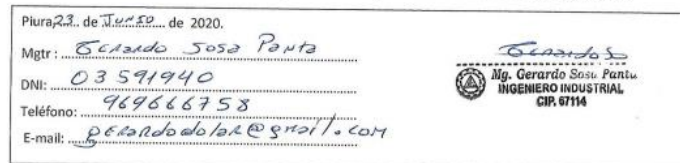 Piura, 23 de Junio de 2020.
Mgtr: Gerardo Sosa Panta
DNI: 03591940
Teléfono: 969666758
E-mail: gerardodolar@gmail.com
Gerardo S
Mg. Gerardo Sosa Panta
INGENIERO INDUSTRIAL
CIP. 67114